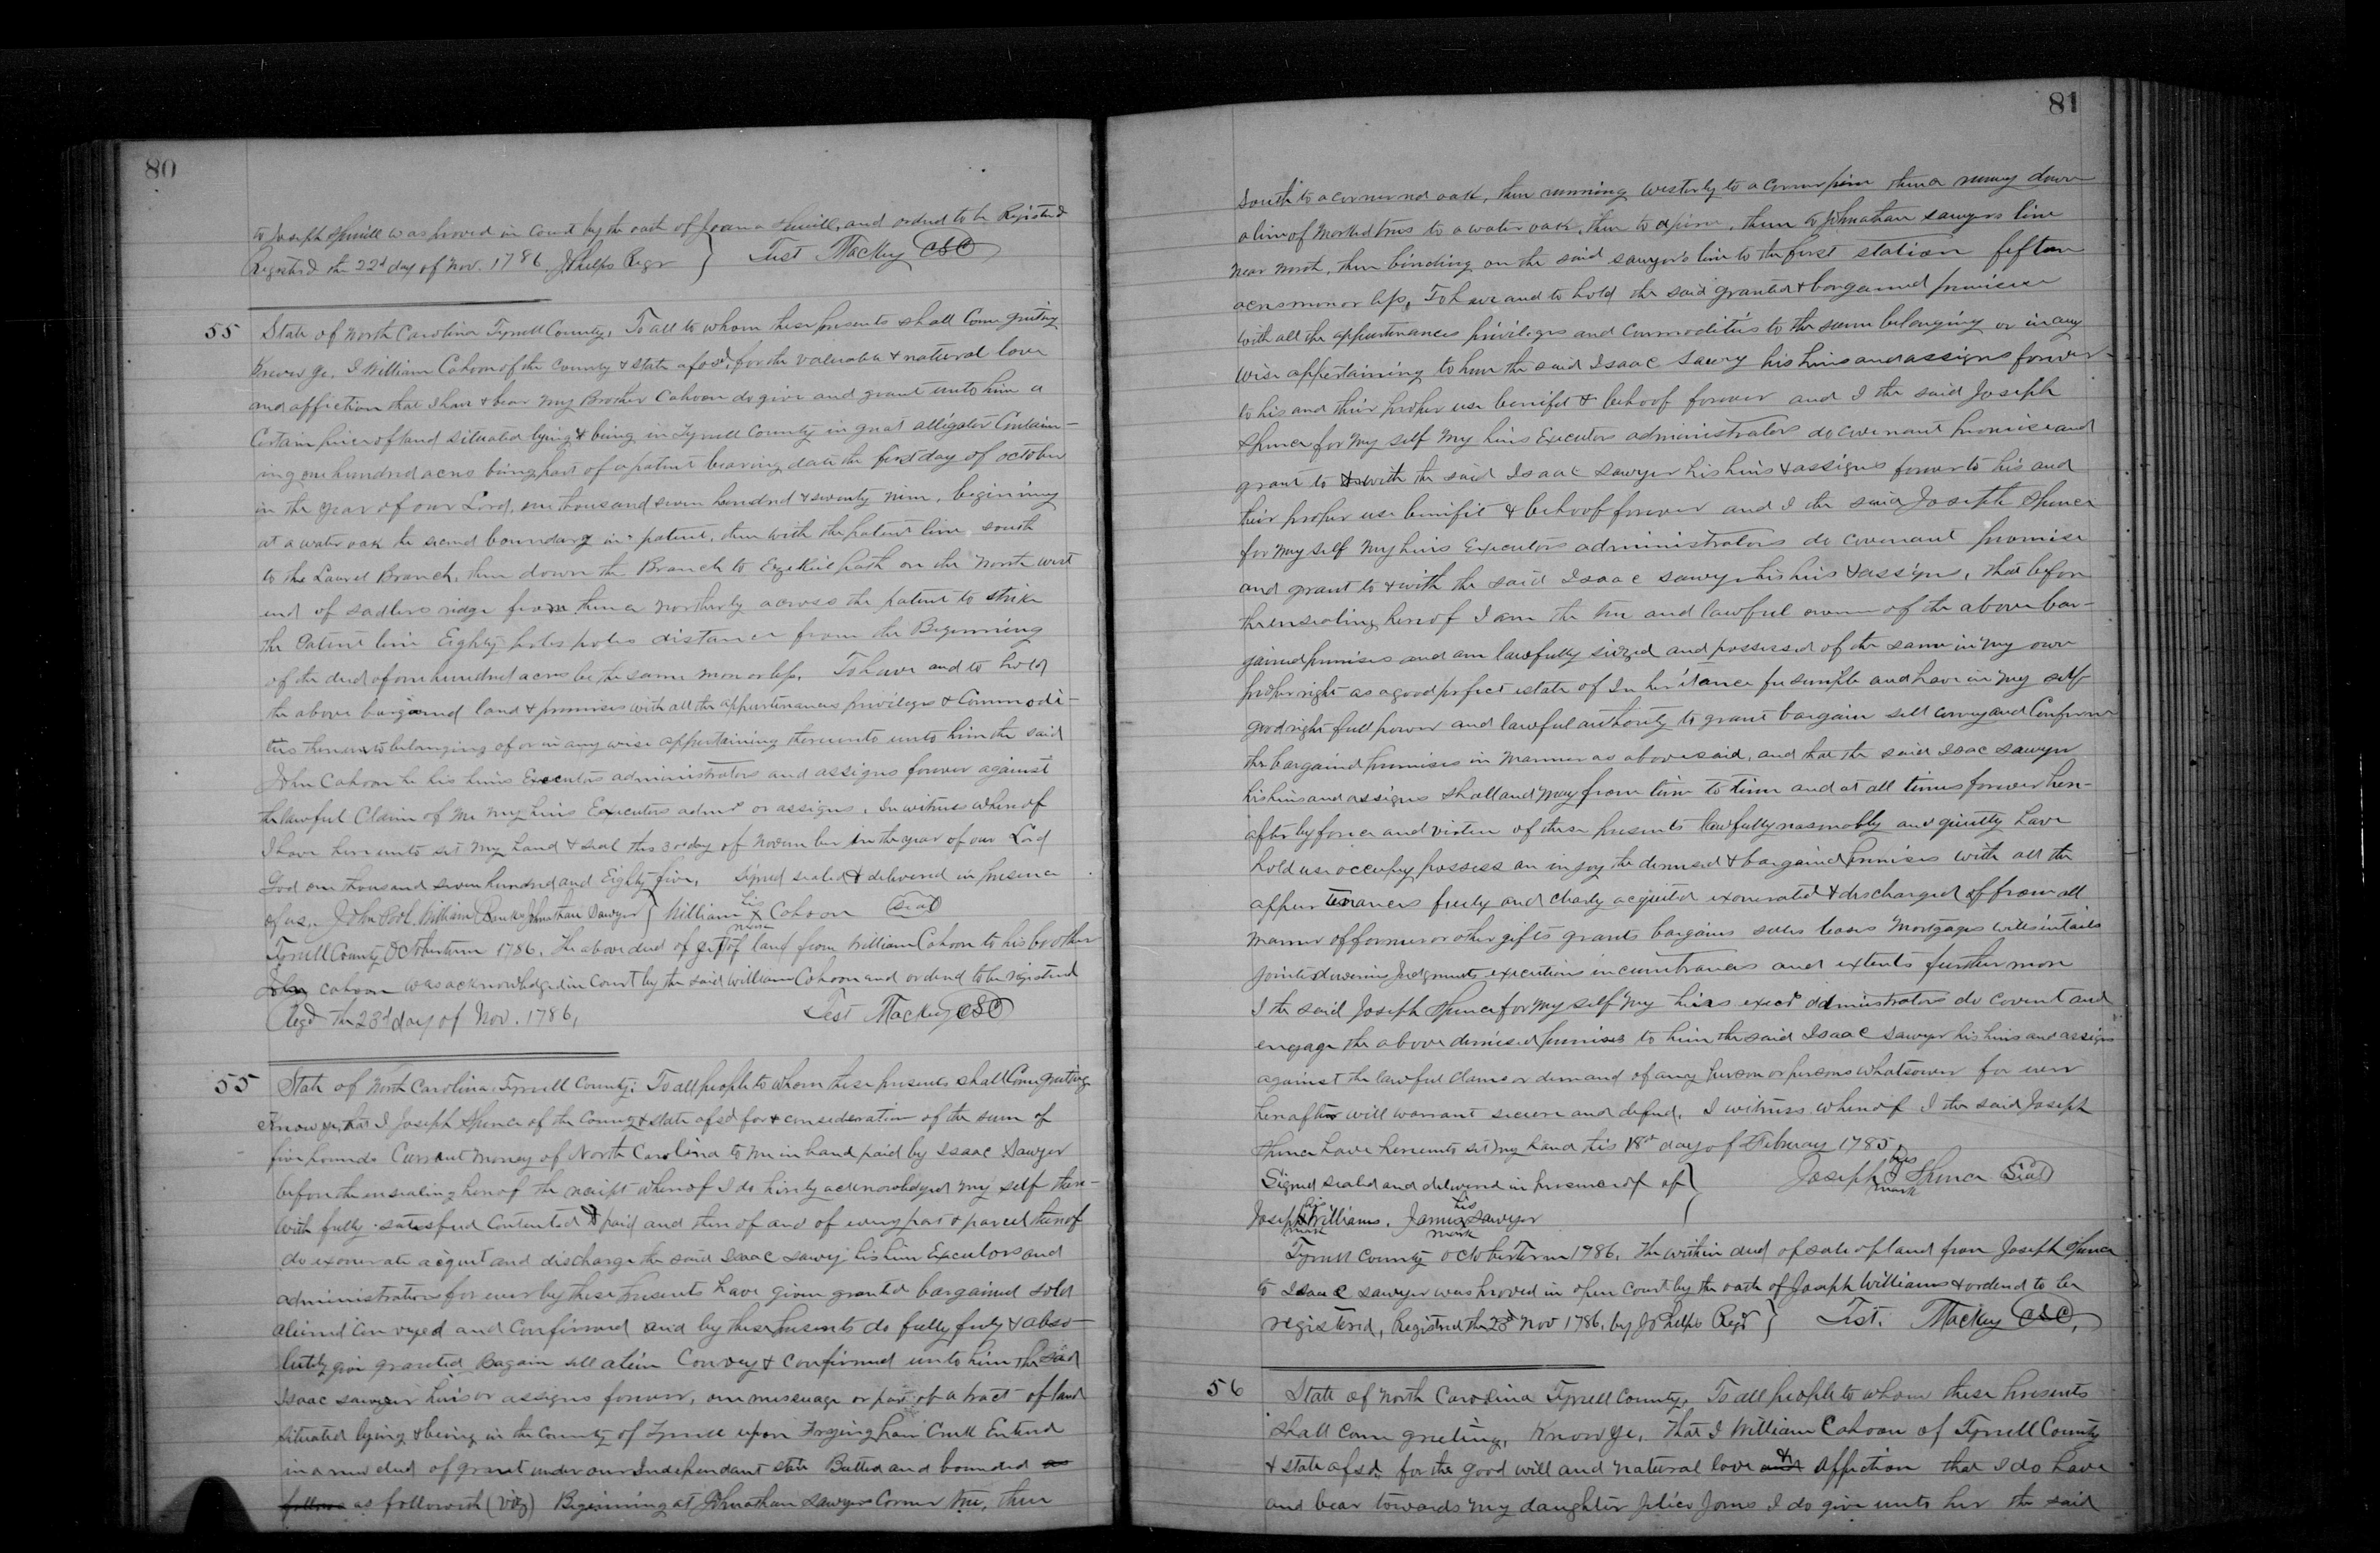 80
to Joseph Spruill was proved in Court by the oath of Joanna Spruill, and ordred to be Registerd
Registerd the 22d day of Nov. 1786 JPhelps Regr } Test Mackey CSC
55 State of North Carolina Tyrrell County, To all to whom these presents shall Come greeting
Know ye, I William Cahoon of the County & state afosd, for the valuable & natural love
and affection that I have & bear my Brother Cahoon do give and grant unto him a
Certain piece of land situated lying & being in Tyrrell County in great alligator Contain-
ing one hundred acres being part of a patent bearing date the first day of october
in the year of our Lord, one thousand seven hundred & seventy nine, beginning
at a water oak the second boundary in patent, then with the patent line, south
to the Laurel Branch, then down the Branch to Ezekiel path on the North west
end of sadlers ridge from thence northerly across the patent to strike
the Patent line Eighty poles poles distance from the Beginning
of the deed of one hundred acres be the same more or less, To have and to hold
the above bargained land & premises with all the appurtenances privileges & Commodi-
ties thereunto belonging of or in any wise appertaining thereunto unto him the said
John Cahoon he his heirs Executors administrators and assigns forever against
the lawful Claim of me my heirs Executors admrs or assigns, In witness whereof
I have hereunto set my hand & seal this 3rd day of November in the year of our Lord
God one thousand seven hundred and Eighty five, signed sealed & delivered in presence
of us. John Pool. William Johnathan Sawyer } William his X mark Cahoon (Seal)
Tyrrell County October term 1786, the above deed of gift of land from William Cahoon to his brother
John cahoon was acknowledged in Court by the said William Cahoon and orderd to be registred
Regd the 23d day of Nov. 1786, Test Mackey CSC
55 State of North Carolina Tyrrell County: To all people to whom these presents shall Come greeting
Know ye, that I Joseph Spence of the County & state afsd for & consideration of the sum of
five pounds Currant money of North Carolina to me in hand paid by Isaac Sawyer
before the ensealing hereof the receipt whereof I do hirely acknowledged my self there-
with fully satesfied Contented & paid and thereof and of every part & parcel thereof
do exonerate acquit and discharge the said Isaac sawy his heirs Executors and
administrators for ever by these presents have given granted bargained sold
aliened Conveyed and Confirmed and by these presents do fully freely & abso-
lutely give granted Bagain sell alein Convey & Confirmed unto him the said
Isaac sawyer heirs or assigns forever, one messuage or part of a tract of land
situated lying & being in the County of Tyrrell upon Creek Enterd
in a new deed of grant under our Independant state Butted and bounded as
follows as followeth (Viz) Beginning at Johnathan Sawyers Corner tree, then
81
South to a cornerred oak, then running westerly to a corner pine thence runing down
a line of marked trees to a water oak, then to a pine, then to Johnathan sawyers line
near north, then binding on the said sawyer's line to the first station fifteen
acres more or less, To have and to hold the said granted & bargained premises
with all the appurtenances privileges and Commodities to the same belonging or in any
wise appertaining to him the said Isaac Sawry his heirs and assigns forever
to his and their proper use benifit & behoof forever and I the said Joseph
Spence for my self my heirs Executors administrators do covenant promise and
grant to & with the said Isaac Sawyer his heirs & assigns forever to his and
their proper use benifit & behoof forever and I the said Joseph Spence
for my self my heirs Executors administrators do covenant promise
and grant to & with the said Isaac Sawyer his heirs & assigns, that before
the ensealing hereof I am the true and lawful owner of the above bar-
gained premises and am lawfully siezed and possessed of the same in my own
proper right as a good perfect estate of Inheritance fee simple and have in my self
good right full power and lawful authority to grant bargain sell convey and Confirm
the bargained premises in manner as abovesaid, and that the said Isac Sawyer
his heirs and assigns shall and may from time to time and at all times forever here-
after by force and virtue of these presents lawfully reasonably and quietly have
hold use occupy possess an injoy the demised & bargained premises with all the
appurtenances freely and clearly acquited exonerated & discharged of from all
manner of former or other gifts grants bargains sales leases Mortgages wills intails
jointes doweries Judgments executions incumbrances and extents further more
I the said Joseph Spence for my self my heirs execrs administrators do covent and
engage the above demised premises to him the said Isaac Sawyer his heirs and assigns
against the lawful claims or demand of any person or persons whatsoever for ever
hereafter will warrant secure and defend, I witness whereof I the said Joseph
Spence have hereunto set my hand this 18th day of February 1785
Signed sealed and delivered in presence of of } Joseph his mark Spence (Seal)
Joseph his X mark Williams. James his mark Sawyer
Tyrrell County October Term 1786, the within deed of sale of land from Joseph Spence
to Isaac Sawyer was proved in open Court by the oath of Joseph Williams & ordered to be
registered, Registred the 23d Nov 1786, by JPhelps Regr } Test. Mackey CSC,
56 State of North Carolina Tyrrell County, To all people to whom these presents
shall Come greeting, Know ye, That I William Cahoon of Tyrrell County
& state afsd. for the good will and natural love and & affection that I do have
and bear towards my daughter I do give unto her the said